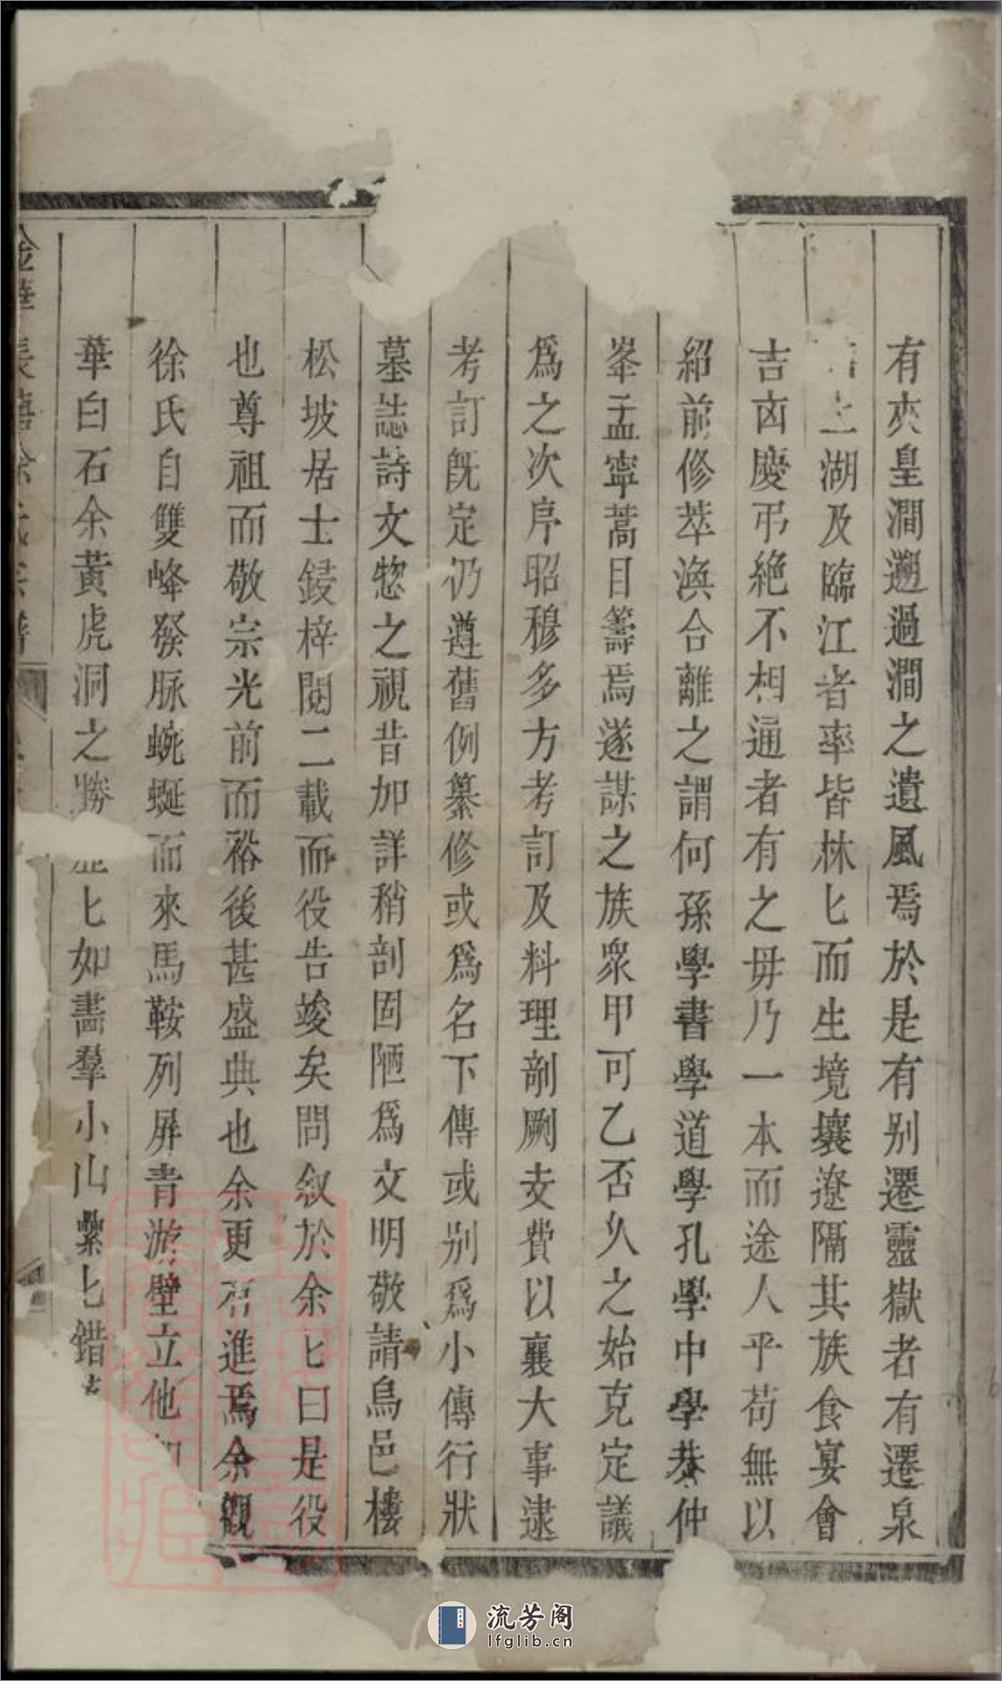 有夾皇澗遡過澗之遺風焉於是有别遷靈嶽者有遷泉
上湖及臨江者率皆林匕而生境壤遼隔其族食宴會
吉凶慶弔絶不相通者有之毋乃一本而途人乎苟無以
紹前修萃渙合離之謂何孫學書學道學孔學中學恭仲
峯孟寧蒿目籌焉遂謀之族衆甲可乙否久之始克定議
爲之次序昭穆多方考訂及料理剞劂支費以襄大事逮
考訂既定仍遵舊例纂修或爲名下傳或别爲小傳行狀
墓誌詩文惣之視昔加詳稍剖固陋爲文明敬請烏邑樓
松坡居士鋟梓閲二載而役告竣矣問叙於余匕曰是役
也尊祖而敬宗光前而裕後甚盛典也余更有進焉余觀
徐氏自雙峰發脉蜿蜒而來馬鞍列屏青游壁立他如
華白石余黄虎洞之勝歷匕如畵羣小山纍匕錯
金華長塘徐氏宗譜
流芳阁
lfglib.cn